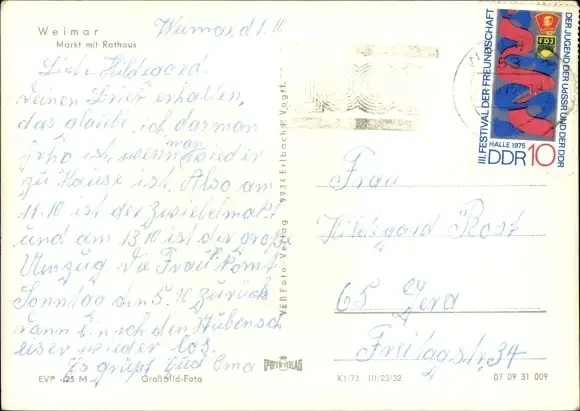 Weimar
Markt mit Rathaus
Weimar d 1.10
Liebe Hildegard.
Deinen Brief erhalten,
das glaube ich das man
froh ist, wenn man wieder
zu Hause ist. Also am
11.10 ist der Zwiebelmarkt
und am 13.10 ist der große
Umzug die Frau kömt
Sonntag den 5.10 zurück
dann bin ich den
wieder los.
Es grüßt Euch Oma
EVP -,25 M
Großbild-Foto
VEB Foto-Verlag · 9934 Erlbach i. Vogtl.
FOTO VERLAG
III. FESTIVAL DER FREUNDSCHAFT
DER JUGEND DER UdSSR UND DER DDR
FDJ
HALLE 1975
DDR 10
Frau
Hildegard Rost
65 Gera
Freitagstr. 34
K1/75 III/23/32
07 09 31 009